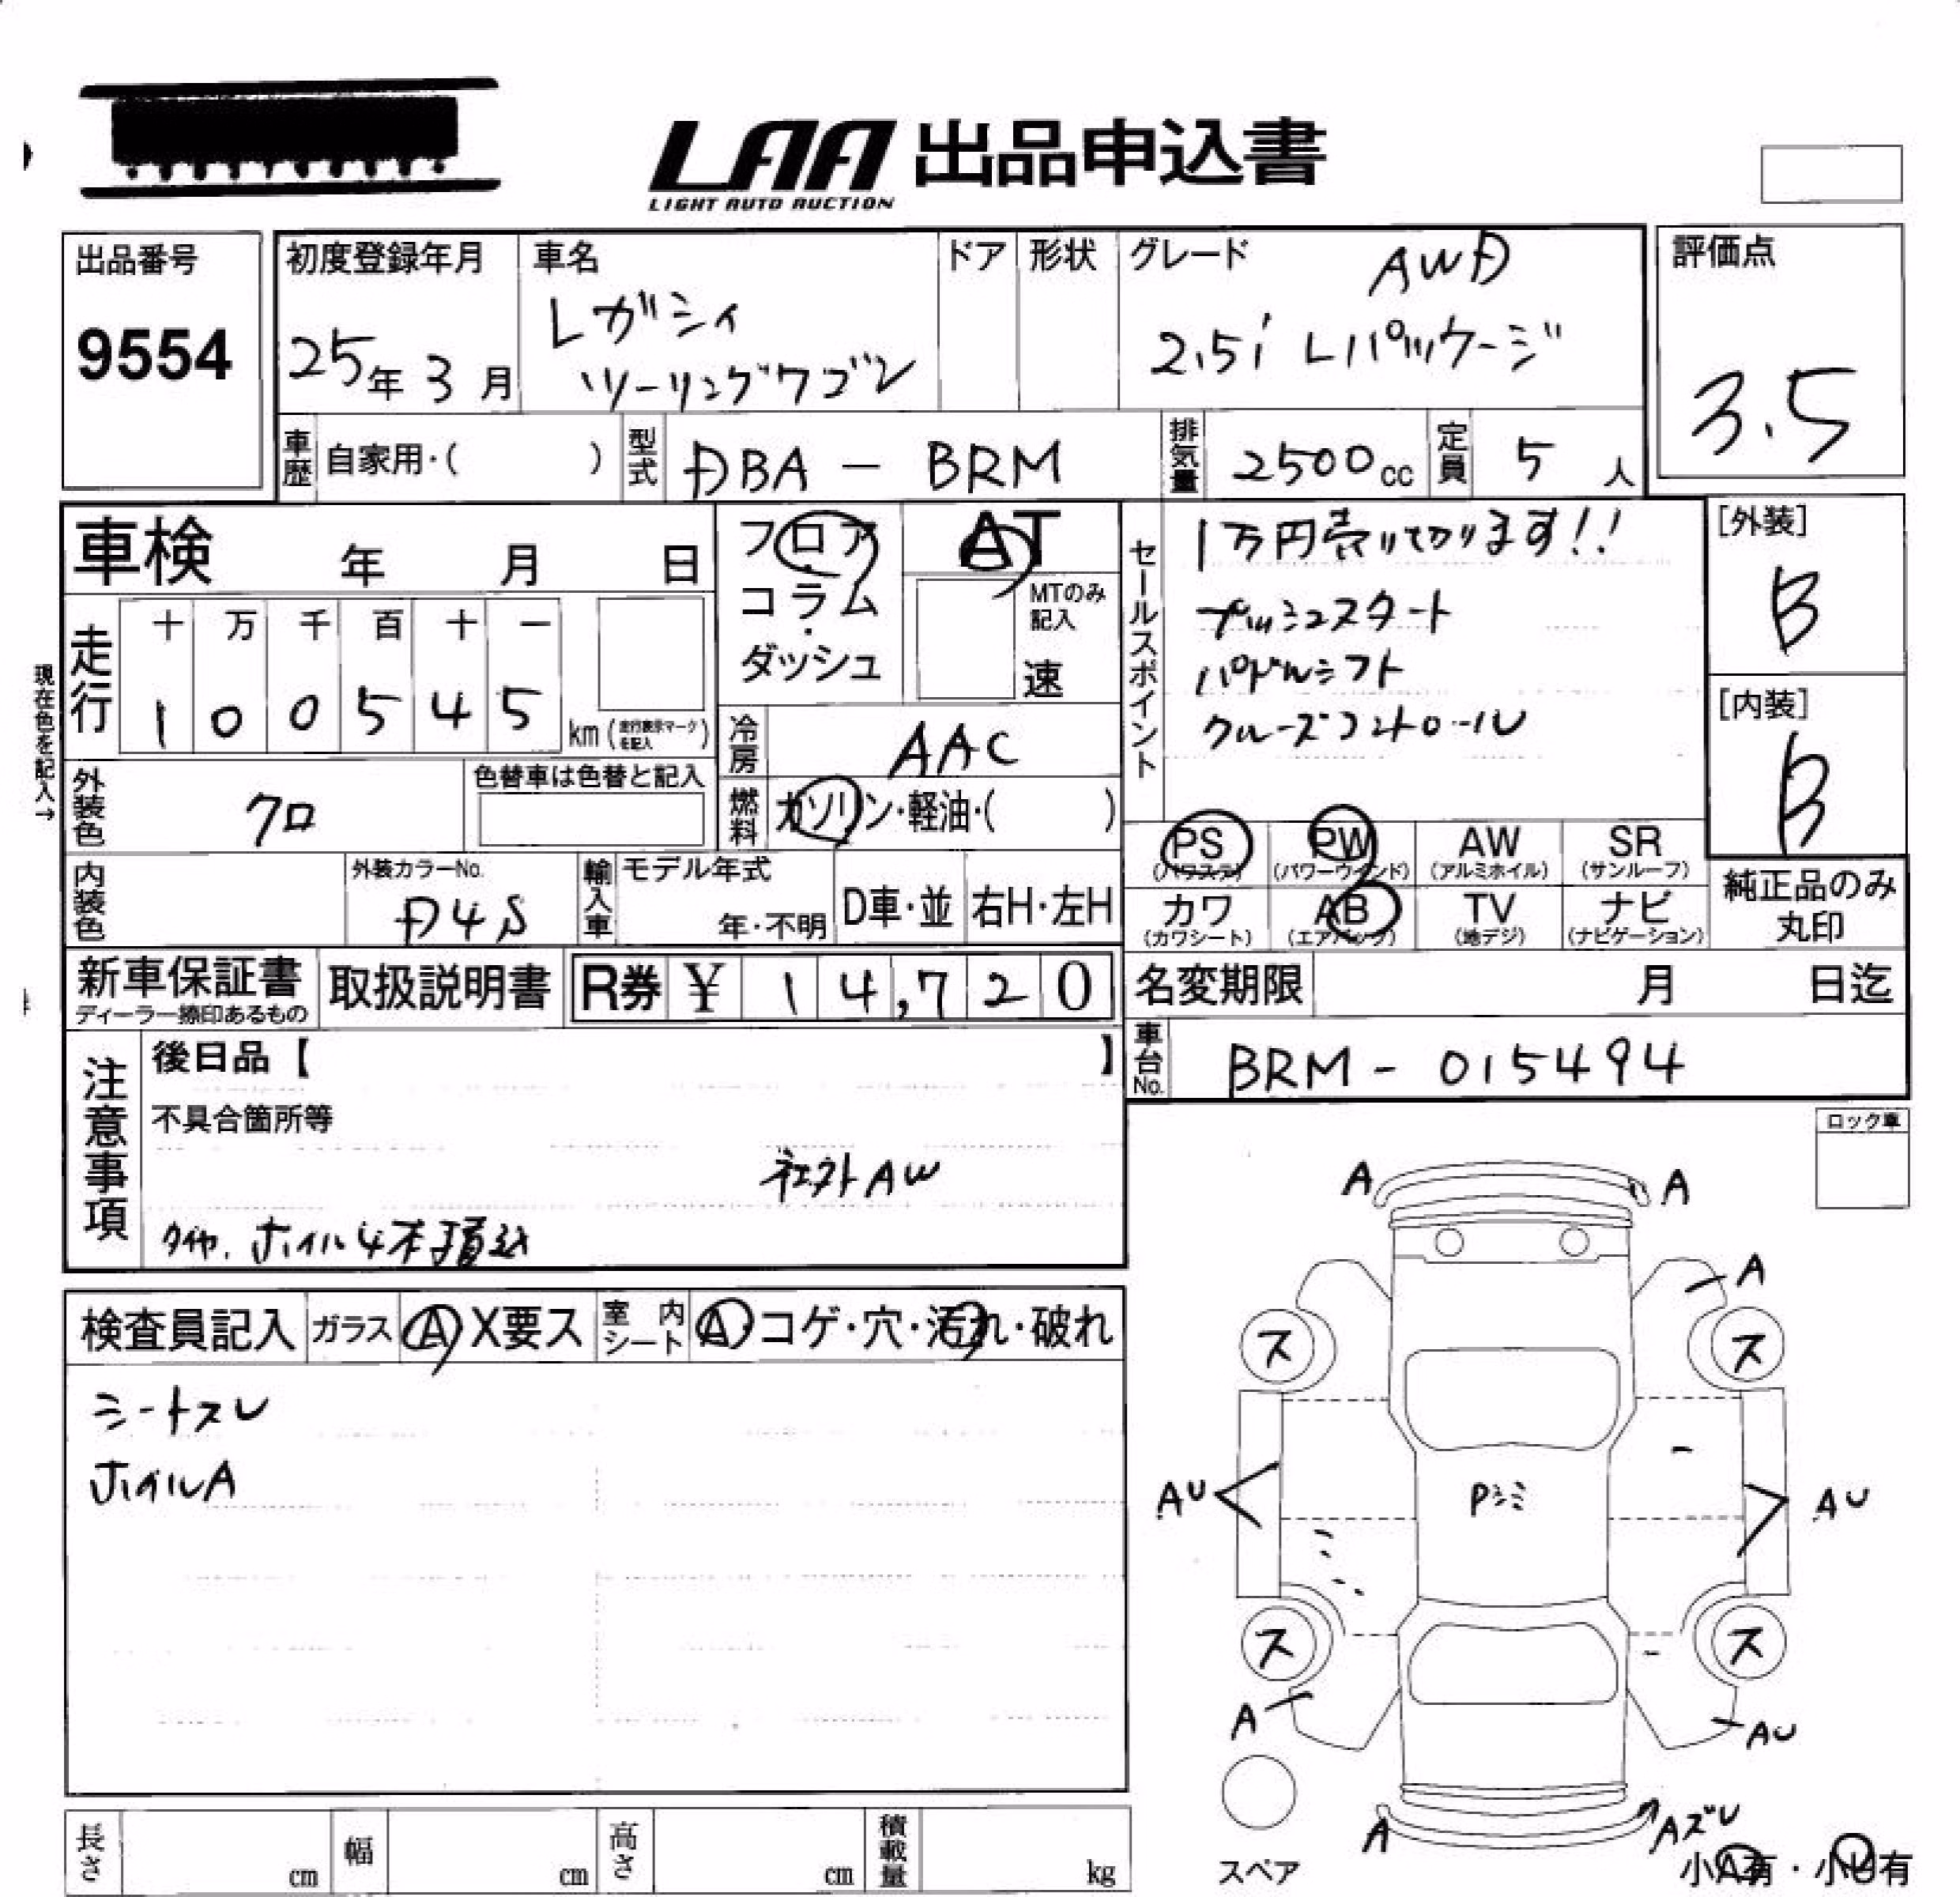 LAA 出品申込書
LIGHT AUTO AUCTION
出品番号
9554
初度登録年月
25年3月
車名
レガシィ
ツーリングワゴン
ドア
形状
グレード
AWD
2.5i Lパッケージ
評価点
3.5
車歴
自家用・( )
型式
DBA - BRM
排気量
2500cc
定員
5人
車検 年 月 日
フロア
コラム
・
ダッシュ
AT
MTのみ
記入
速
セールスポイント
1万円売り切ります!!
プッシュスタート
パドルシフト
クルーズコントロール
[外装]
B
[内装]
B
現在色を記入→
走行
十 万 千 百 十 一
1 0 0 5 4 5
km (走行表示マークを記入)
冷房
AAC
外装色
クロ
色替車は色替と記入
燃料
ガソリン・軽油・( )
PS
(パワステ)
PW
(パワーウインド)
AW
(アルミホイル)
SR
(サンルーフ)
内装色
外装カラーNo.
D4S
輸入車
モデル年式
年・不明
D車・並
右H・左H
カワ
(カワシート)
AB
(エアバッグ)
TV
(地デジ)
ナビ
(ナビゲーション)
純正品のみ
丸印
新車保証書
ディーラー捺印あるもの
取扱説明書
R券 ¥ 1 4,7 2 0
名変期限 月 日迄
車台No.
BRM - 015494
注意事項
後日品【 】
不具合箇所等
社外AW
タイヤ、ホイル4本積込
ロック車
検査員記入
ガラス
A X要ス
室内シート
A・コゲ・穴・汚れ・破れ
シートスレ
ホイルA
A
A
A
ス
ス
AU
Pシミ
AU
ス
ス
A
AU
A
Aズレ
スペア
小A有・小U有
長さ cm
幅 cm
高さ cm
積載量 kg